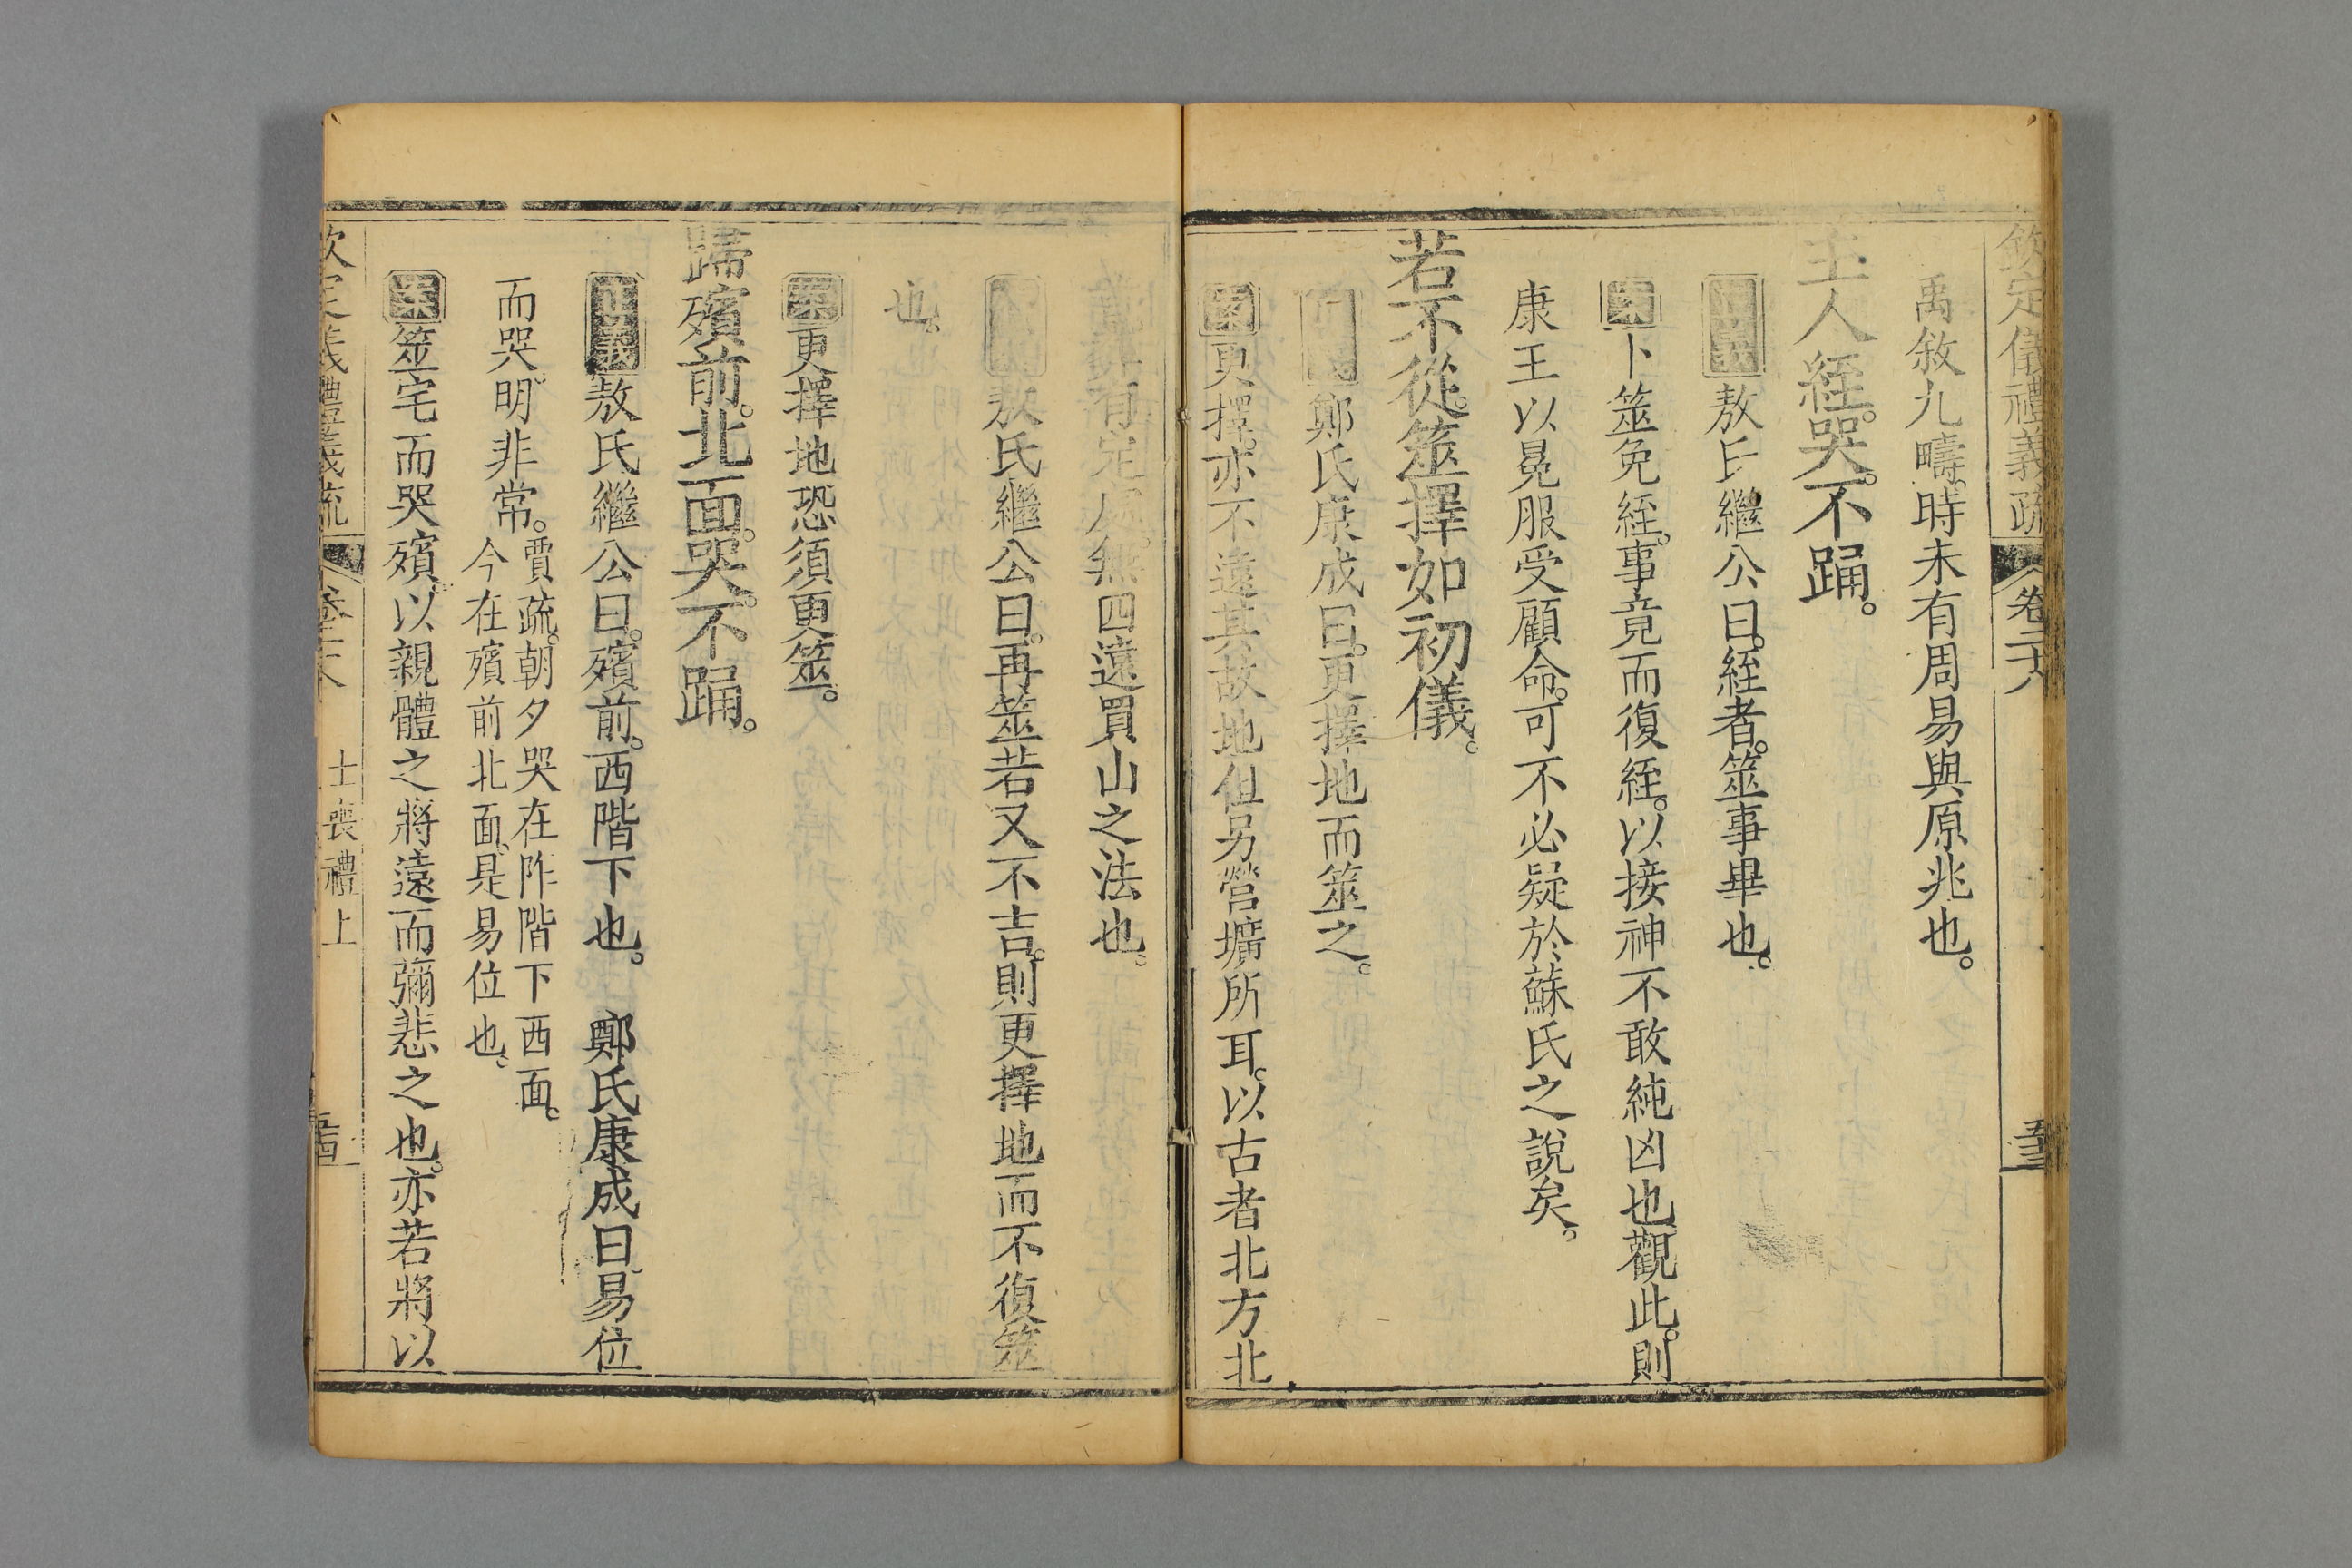 欽定儀禮義疏 卷二十八 五三
禹敘九疇。時未有周易與原兆也。
主人絰。哭。不踊。
正義 敖氏繼公曰。絰者。筮事畢也。
案 卜筮免絰。事竟而復絰。以接神不敢純凶也。觀此。則
康王以冕服受顧命。可不必疑於蘇氏之說矣。
若不從。筮擇如初儀。
鄭氏康成曰。更擇地而筮之。
案 更擇。亦不遠其故地但另營壙所耳。以古者北方北
有定 無四遠買山之法也。
敖氏繼公曰。再筮若又不吉。則更擇地而不復筮
也。
案 更擇地恐須更筮。
歸殯前。北面。哭。不踊。
正義 敖氏繼公曰。殯前。西階下也。 鄭氏康成曰易位
而哭。明非常。賈疏。朝夕哭在阼階下西面。
今在殯前北面。是易位也。
案 筮宅而哭殯。以親體之將遠而彌悲之也。亦若將以
欽定儀禮義疏 卷二十八 士喪禮上 五四